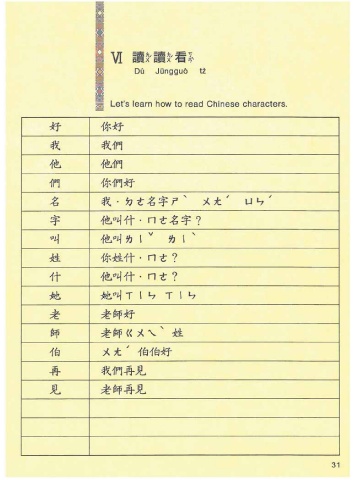 VI 讀讀看
Dú
Let's learn how to read Chinese characters.
好 你好
我 我們
他 他們
們 你們好
名 我・ㄉㄜ名字ㄕˋ ㄨㄤˊ ㄩㄣˊ
字 他叫什・ㄇㄜ名字?
叫 他叫ㄌㄧˇ ㄌㄧˋ
姓 你姓什・ㄇㄜ?
什 他叫什・ㄇㄜ?
她 她叫ㄒㄧㄣ ㄒㄧㄣ
老 老師好
師 老師ㄍㄨㄟˋ 姓
伯 ㄨㄤˊ 伯伯好
再 我們再見
見 老師再見
31